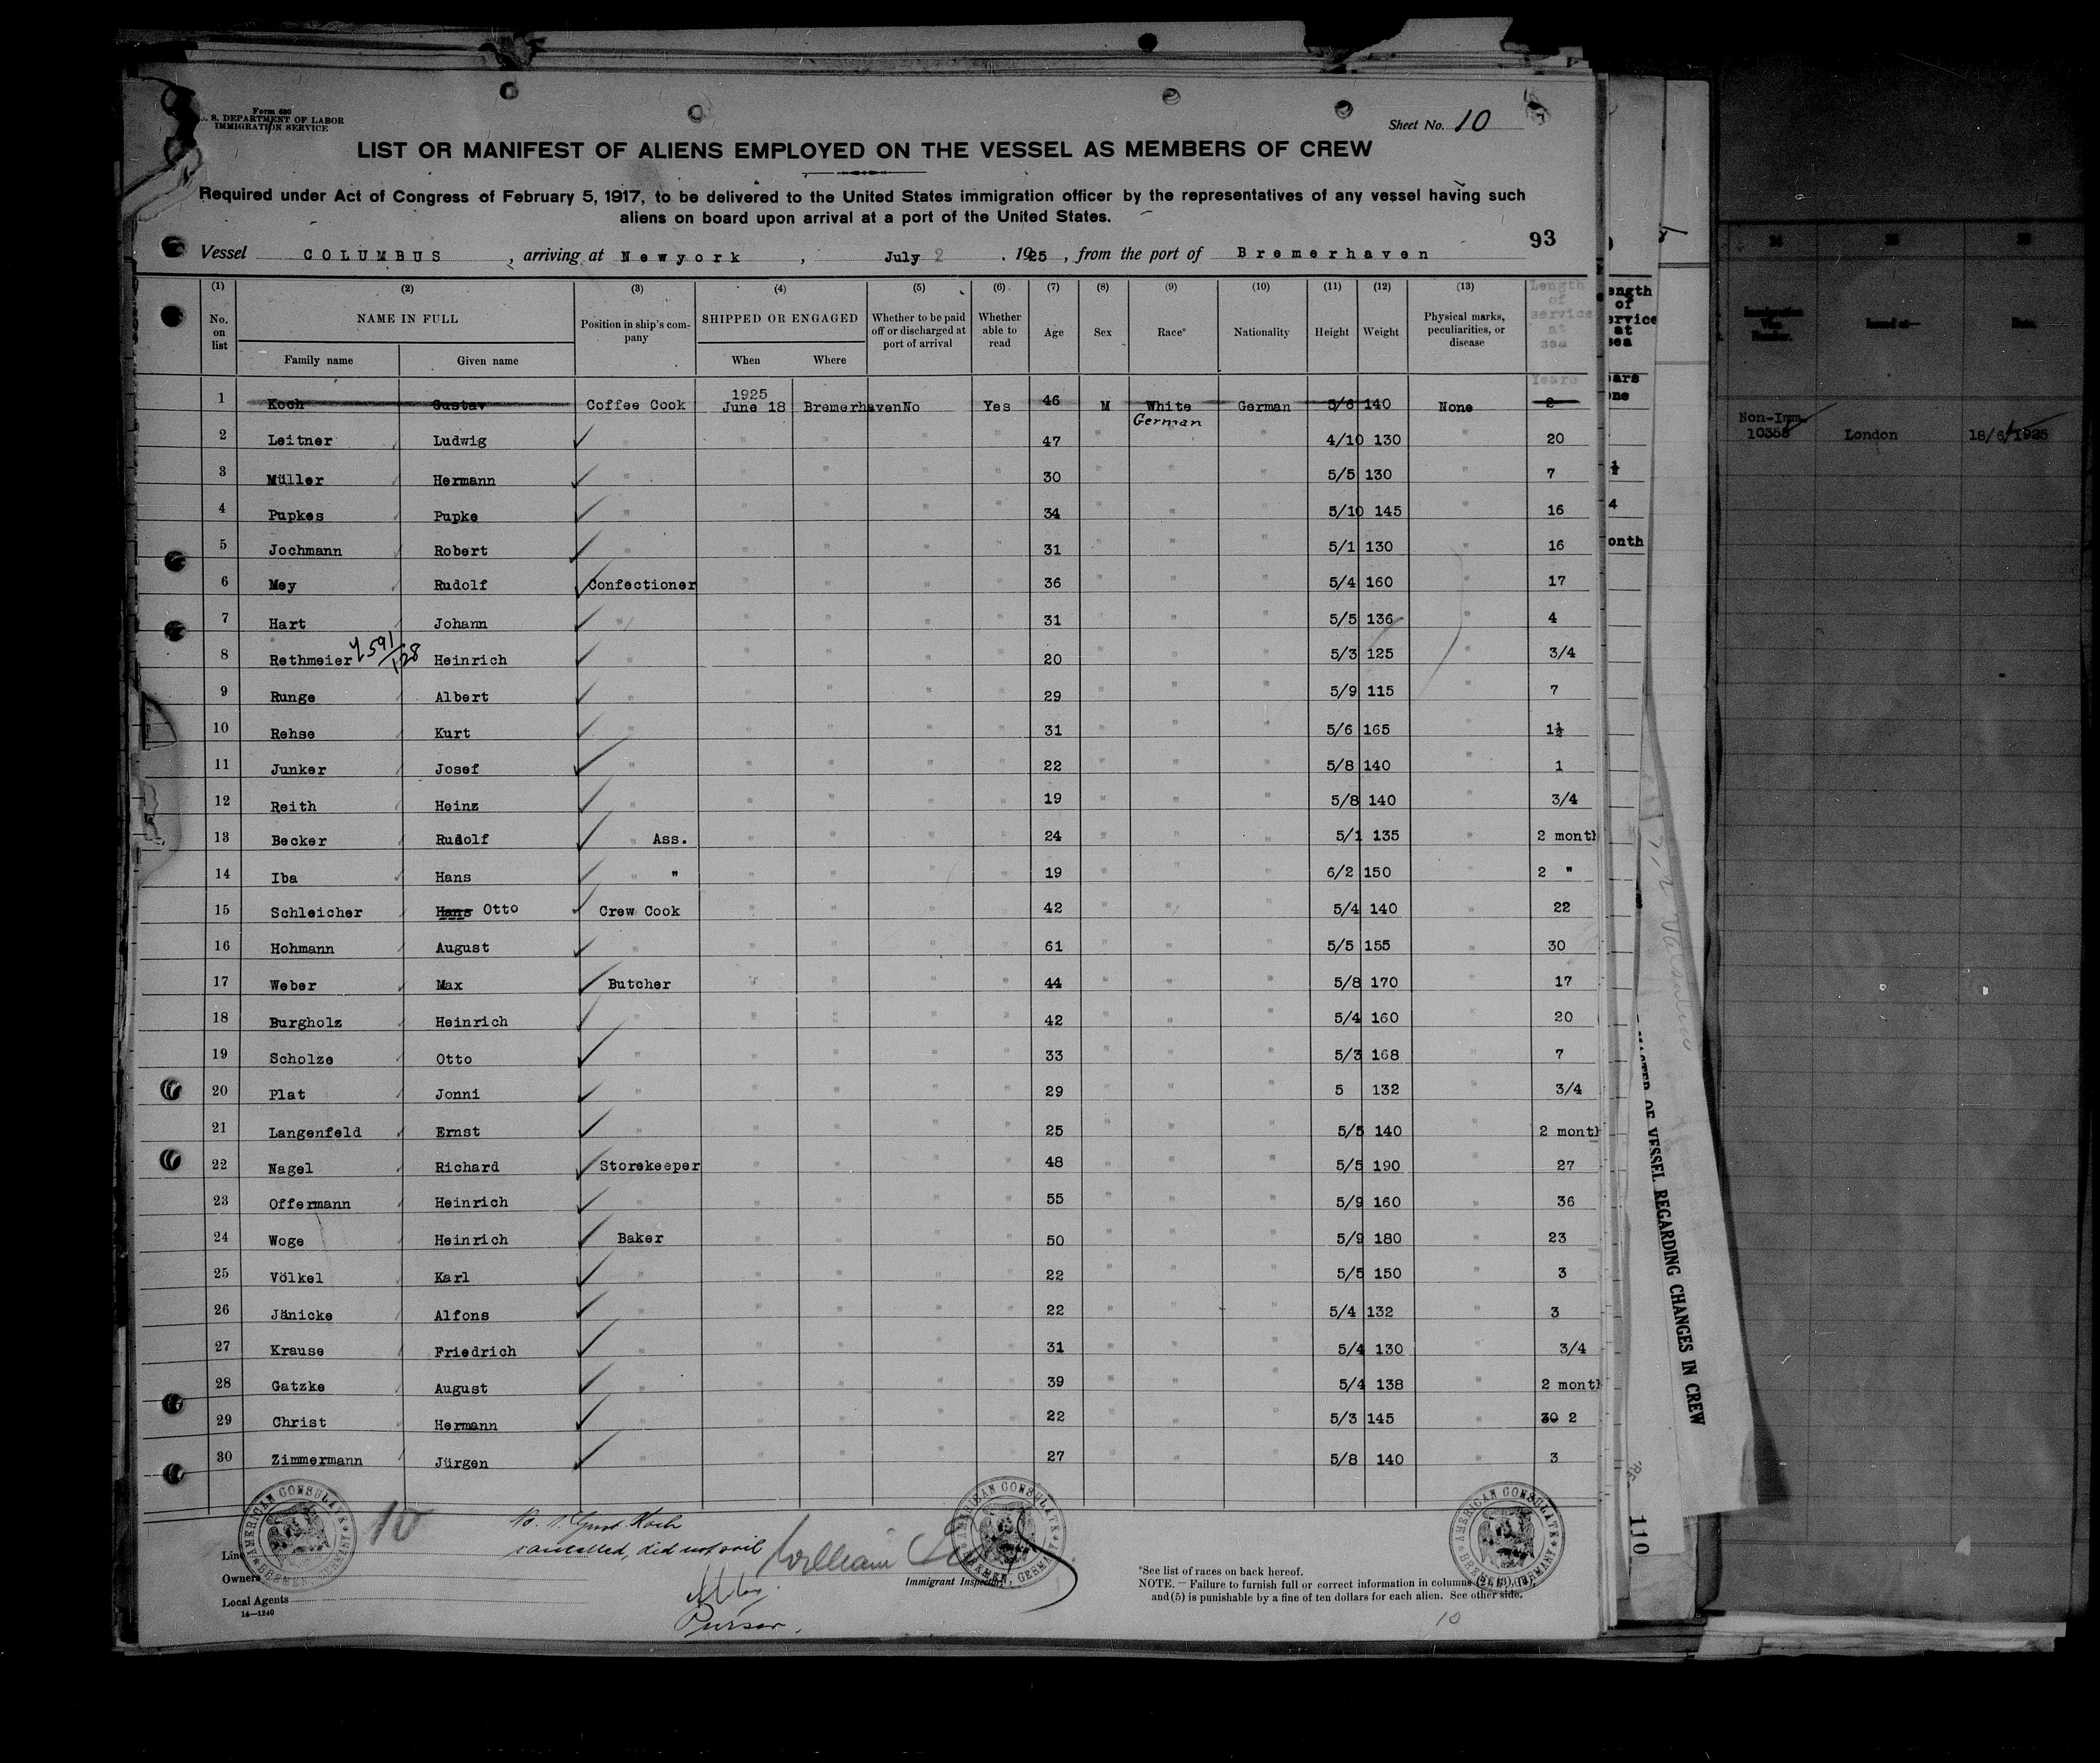 Form 680
U. S. DEPARTMENT OF LABOR
IMMIGRATION SERVICE
Sheet No. 10
LIST OR MANIFEST OF ALIENS EMPLOYED ON THE VESSEL AS MEMBERS OF CREW
Required under Act of Congress of February 5, 1917, to be delivered to the United States immigration officer by the representatives of any vessel having such
aliens on board upon arrival at a port of the United States.
93
Vessel COLUMBUS, arriving at Newyork, July 2, 1925, from the port of Bremerhaven
(1) (2) (3) (4) (5) (6) (7) (8) (9) (10) (11) (12) (13)
No. on list NAME IN FULL Family name Given name Position in ship's company SHIPPED OR ENGAGED When Where Whether to be paid off or discharged at port of arrival Whether able to read Age Sex Race* Nationality Height Weight Physical marks, peculiarities, or disease Length of service at sea
Years
1925
1 Koch Gustav Coffee Cook June 18 Bremerhaven No Yes 46 M White German 5/6 140 None 2
German
2 Leitner Ludwig " " " " " 47 " " " 4/10 130 " 20
3 Müller Hermann " " " " " 30 " " " 5/5 130 " 7
4 Pupkes Pupke " " " " " 34 " " " 5/10 145 " 16
5 Jochmann Robert " " " " " 31 " " " 5/1 130 " 16
6 Mey Rudolf Confectioner " " " " 36 " " " 5/4 160 " 17
7 Hart Johann " " " " " 31 " " " 5/5 136 " 4
8 Rethmeier 4591/128 Heinrich " " " " " 20 " " " 5/3 125 " 3/4
9 Runge Albert " " " " " 29 " " " 5/9 115 " 7
10 Rehse Kurt " " " " " 31 " " " 5/6 165 " 1½
11 Junker Josef " " " " " 22 " " " 5/8 140 " 1
12 Reith Heinz " " " " " 19 " " " 5/8 140 " 3/4
13 Becker Rudolf " Ass. " " " " 24 " " " 5/1 135 " 2 month
14 Iba Hans " " " " " " 19 " " " 6/2 150 " 2 "
15 Schleicher Hans Otto Crew Cook " " " " 42 " " " 5/4 140 " 22
16 Hohmann August " " " " " 61 " " " 5/5 155 " 30
17 Weber Max Butcher " " " " 44 " " " 5/8 170 " 17
18 Burgholz Heinrich " " " " " 42 " " " 5/4 160 " 20
19 Scholze Otto " " " " " 33 " " " 5/3 168 " 7
20 Plat Jonni " " " " " 29 " " " 5 132 " 3/4
21 Langenfeld Ernst " " " " " 25 " " " 5/5 140 " 2 month
22 Nagel Richard Storekeeper " " " " 48 " " " 5/5 190 " 27
23 Offermann Heinrich " " " " " 55 " " " 5/9 160 " 36
24 Woge Heinrich Baker " " " " 50 " " " 5/9 180 " 23
25 Völkel Karl " " " " " 22 " " " 5/5 150 " 3
26 Jänicke Alfons " " " " " 22 " " " 5/4 132 " 3
27 Krause Friedrich " " " " " 31 " " " 5/4 130 " 3/4
28 Gatzke August " " " " " 39 " " " 5/4 138 " 2 month
29 Christ Hermann " " " " " 22 " " " 5/3 145 " 30 2
30 Zimmermann Jürgen " " " " " 27 " " " 5/8 140 " 3
AMERICAN CONSULATE BREMEN, GERMANY
10
No. 1. Gust. Koch
cancelled, did not sail
Purser.
William
Immigrant Inspector
AMERICAN CONSULATE BREMEN, GERMANY
AMERICAN CONSULATE BREMEN, GERMANY
Line
Owners
Local Agents
14—1240
*See list of races on back hereof.
NOTE.—Failure to furnish full or correct information in columns
and (5) is punishable by a fine of ten dollars for each alien. See other side.
10
ength
of
ervice
at
sea
ars
one
½
4
onth
OF VESSEL REGARDING CHANGES IN CREW
110
Non-Imm.
10358 London 18/6/1925